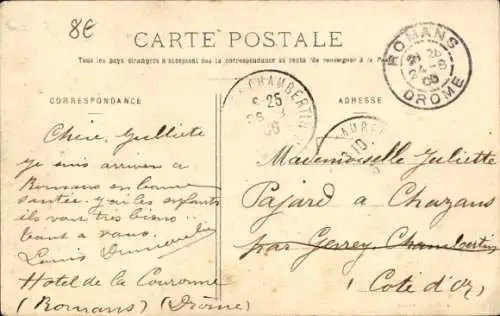 8€
CARTE POSTALE
Tous les pays étrangers n'acceptent pas la correspondance au recto (Se renseigner à la Poste)
CORRESPONDANCE
ADRESSE
ROMANS
DROME
CHAMBERTIN
8-25
06
Chère Julliette
je suis arriver a
Romans en bonne
santée. y ai les enfants
ils vont très bien
tout a vous.
Louis
Hotel de la Couronne
(Romans) (Drôme)
Mademoiselle Juliette
Pajard à Chazans
par Gevrey Chambertin
(Cote d'Or)